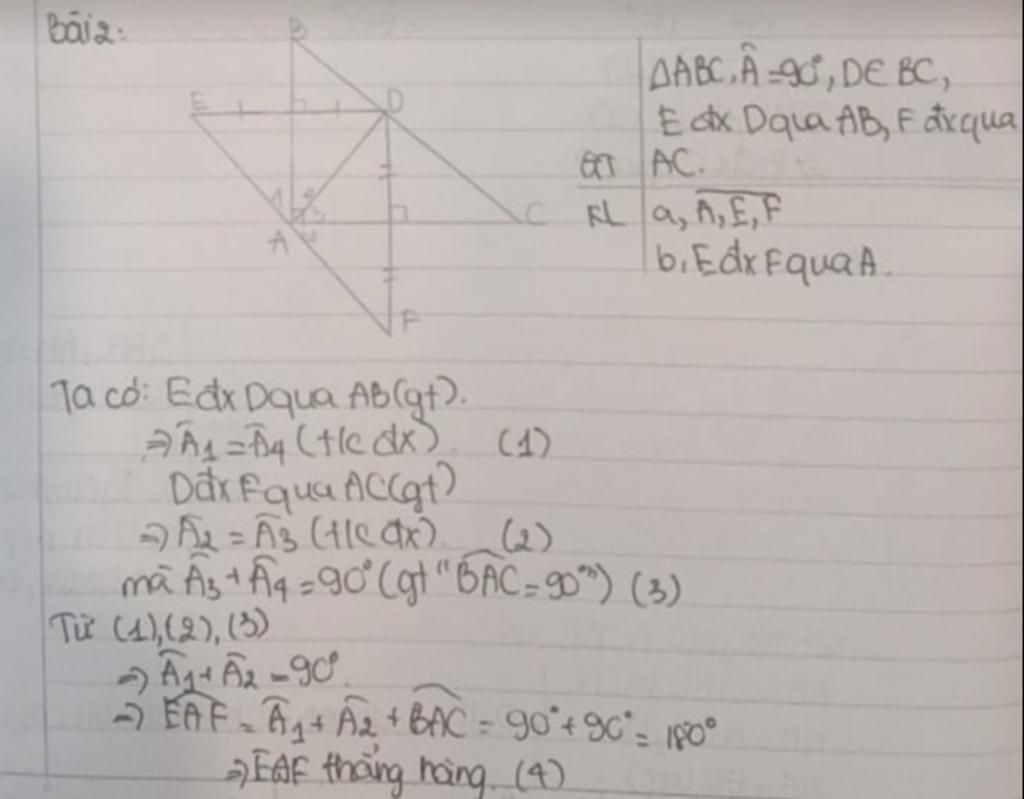 Bài 2:
B
E
D
1 2
3
A 4
C
F
ΔABC, Â = 90°, D ∈ BC,
E đx D qua AB, F đx qua
GT AC.
KL a, A, E, F
b, E đx F qua A.
Ta có: E đx D qua AB (gt).
⇒ Â1 = Â4 (t/c đx) (1)
D đx F qua AC (gt)
⇒ Â2 = Â3 (t/c đx) (2)
mà Â3 + Â4 = 90° (gt "BAC = 90°") (3)
Từ (1), (2), (3)
⇒ Â1 + Â2 = 90°
⇒ EAF = Â1 + Â2 + BAC = 90° + 90° = 180°
⇒ EAF thẳng hàng. (4)